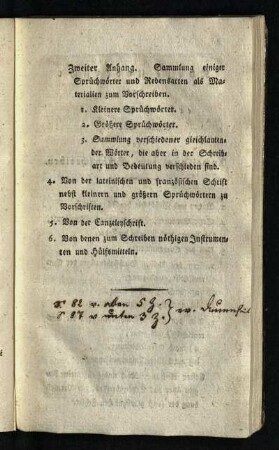 Zweiter Anhang. Sammlung einiger
Sprüchwörter und Redensarten als Ma-
terialien zum Vorschreiben.
1. Kleinere Sprüchwörter.
2. Größere Sprüchwörter.
3. Sammlung verschiedener gleichlauten-
der Wörter, die aber in der Schreib-
art und Bedeutung verschieden sind.
4. Von der lateinischen und französischen Schrift
nebst kleinern und größern Sprüchwörtern zu
Vorschriften.
5. Von der Canzleyschrift.
6. Von denen zum Schreiben nöthigen Instrumen-
ten und Hülfsmitteln.
S 82 v. oben 5 Z.
S 87 v unten 3 Z.